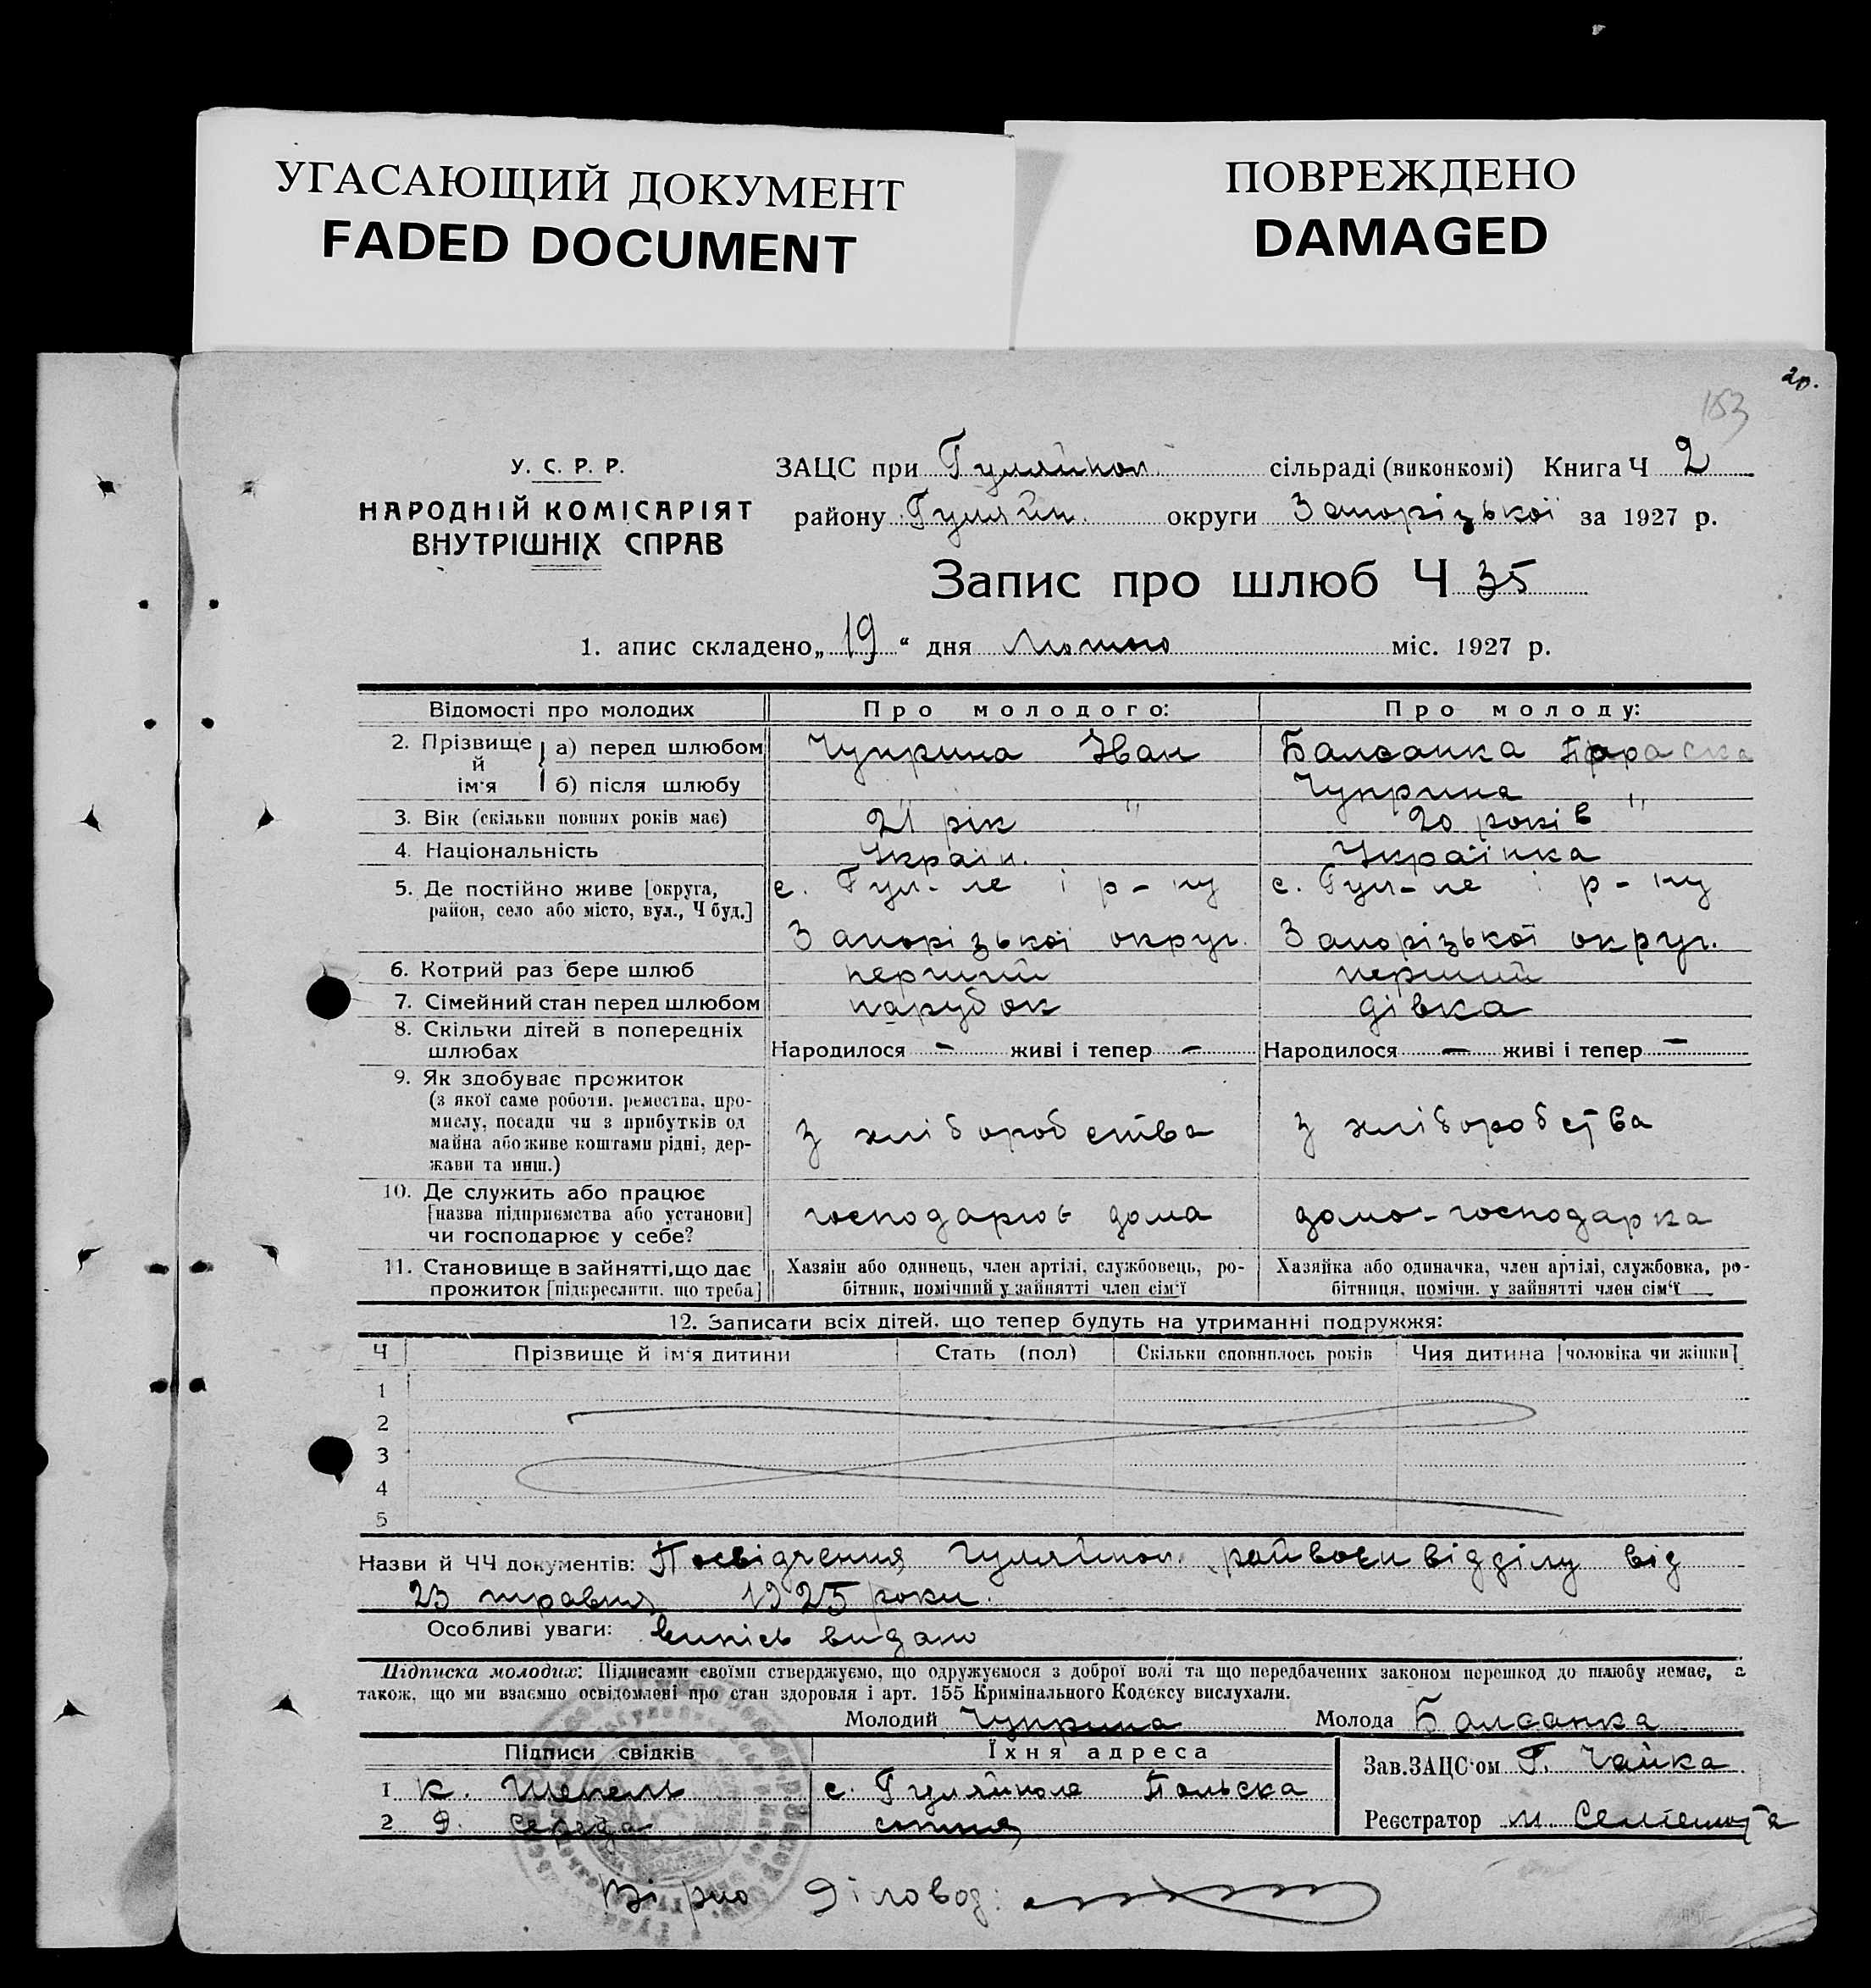 УГАСАЮЩИЙ ДОКУМЕНТ
FADED DOCUMENT
ПОВРЕЖДЕНО
DAMAGED
20.
153
У. С. Р. Р.
НАРОДНІЙ КОМІСАРІЯТ
ВНУТРІШНІХ СПРАВ
ЗАЦС при Гуляйпол. сільраді (виконкомі) Книга Ч 2
району Гуляйп. округи Запорізької за 1927 р.
Запис про шлюб Ч 35
1. апис складено „19“ дня Лютого міс. 1927 р.
Відомості про молодих Про молодого: Про молоду:
2. Прізвище й ім'я а) перед шлюбом Чуприна Іван Балсанка Параска
б) після шлюбу " Чуприна "
3. Вік (скільки повних років має) 21 рік 20 років
4. Національність Україн. Українка
5. Де постійно живе [округа, с. Гул-ле і р-ну с. Гул-ле і р-ну
район, село або місто, вул., Ч буд.]
Запорізької округ. Запорізької округ.
6. Котрий раз бере шлюб перший перший
7. Сімейний стан перед шлюбом парубок дівка
8. Скільки дітей в попередніх
шлюбах Народилося - живі і тепер - Народилося - живі і тепер -
9. Як здобуває прожиток
(з якої саме роботи, ремества, про-
мислу, посади чи з прибутків од
майна або живе коштами рідні, дер-
жави та инш.)
з хліборобства з хліборобства
10. Де служить або працює
[назва підприємства або установи]
чи господарює у себе?
господарює дома домо-господарка
11. Становище в зайнятті, що дає Хазяїн або одинець, член артілі, службовець, ро- Хазяйка або одиначка, член артілі, службовка, ро-
прожиток [підкреслити, що треба] бітник, помічний у зайнятті член сім'ї бітниця, помічн. у зайнятті член сім'ї
12. Записати всіх дітей, що тепер будуть на утриманні подружжя:
Ч Прізвище й ім'я дитини Стать (пол) Скільки сповнилось років Чия дитина [чоловіка чи жінки]
1
2
3
4
5
Назви й ЧЧ документів: Посвідчення Гуляйпол. райвоєнвідділу від
23 травня 1925 роки.
Особливі уваги: Випісь видано
Підписка молодих: Підписами своїми стверджуємо, що одружуємося з доброї волі та що передбачених законом перешкод до шлюбу немає, а
також, що ми взаємно освідомлені про стан здоровля і арт. 155 Кримінального Кодексу вислухали.
Молодий Чуприна Молода Балсанка
Підписи свідків Їхня адреса Зав.ЗАЦС'ом Г. Чайка
1 К. Шепель с. Гуляйполе Польска
2 Д. Середа сотня Реєстратор М.
Вірно Діловод: